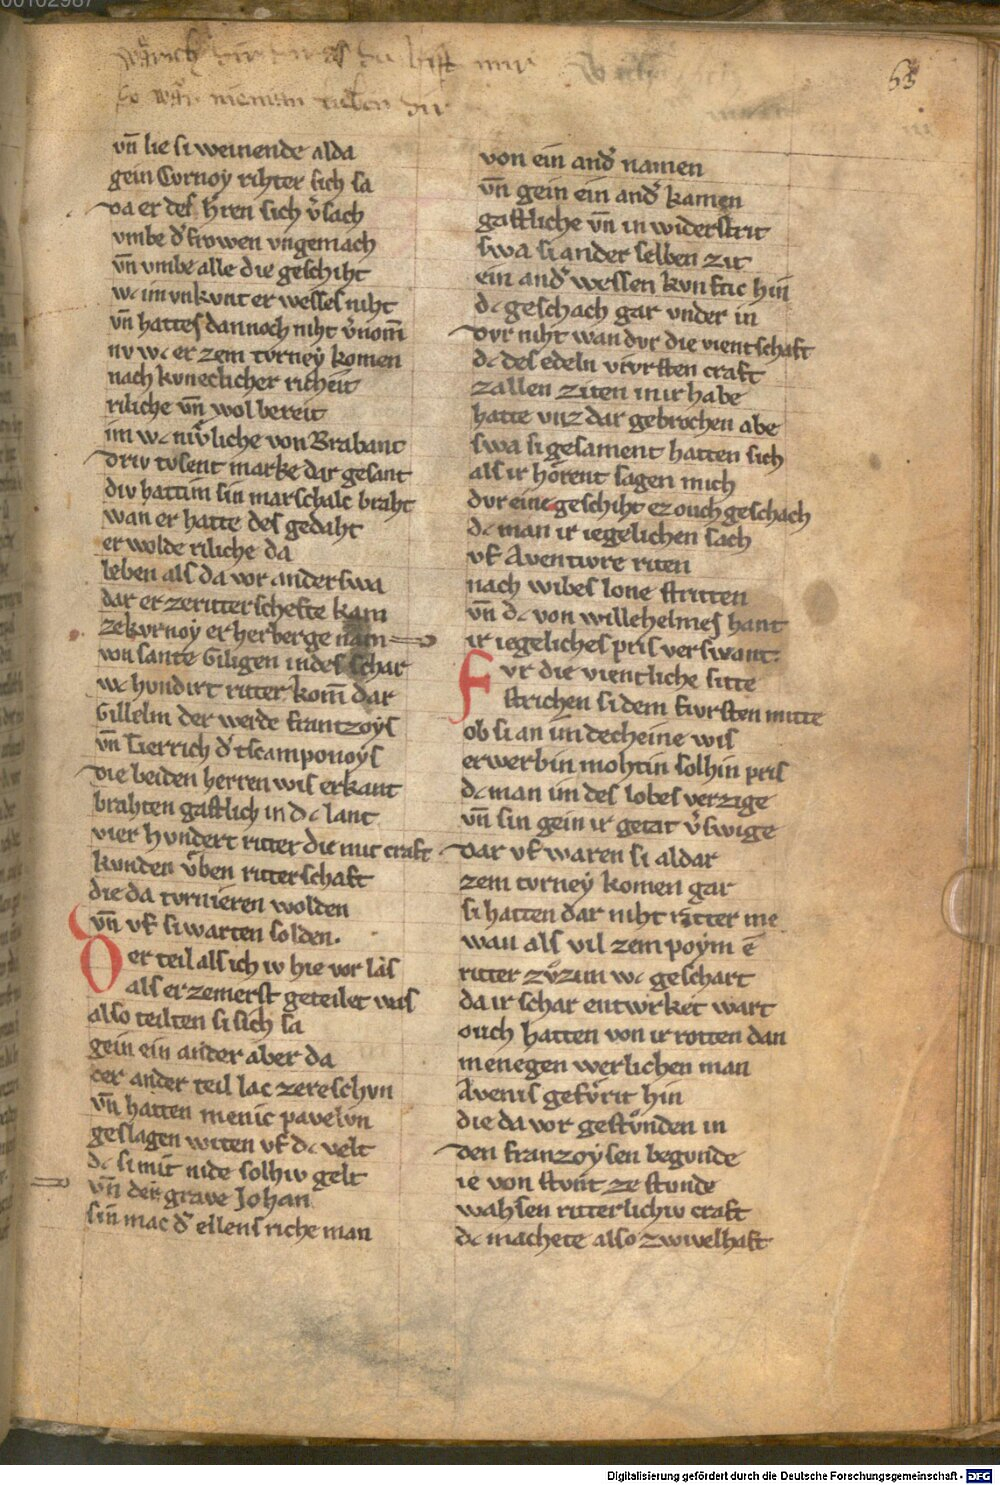 63
vn̄ lie si weinende alda
gein Cornoy rihter sich sa
da er des h̄ren sich v̓sach
vmbe d̓ frowen vngemach
vn̄ vmbe alle die geschiht
wc im vnkvnt er wesses niht
vn̄ hattes dannoch niht v̓nom̄
nv wc er zem tvrney komen
nach kvneclicher ritheit
riliche vn̄ wol bereit
im wc niv̓liche von Brabant
driv tvsent marke dar gesant
div hattim sin marschalc braht
wan er hatte des gedaht
er wolde riliche da
leben als da vor anderswa
dar er ze ritterschefte kam
ze kvrnoy er herberge nam
von sante Giligen in des schar
wc hvndirt ritter kom̄ dar
Gillelm der werde frantzoys
vn̄ Gerrich d̓ tscamponoys
die beiden herren wis erkant
brahten gastlich in dc lant
vier hvndert ritter die mit craft
kvnden v̓ben ritterschaft
die da tvrnieren wolden
vn̄ vf si warten solden.
Der teil als ich iv hie vor las
als er zemerst geteilet was
also teilten si sich sa
gein ein ander aber da
der ander teil lac ze reschvn
vn̄ hatten menic pavelvn
geslagen witen vf dc velt
dc si mit nide solhiv gelt
vn̄ der grave Johan
sin mac d̓ ellens riche man
von ein and̓ namen
vn̄ gein ein and̓ kamen
gastliche vn̄ in widerstrit
swa si an der selben zit
ein and̓ wessen kvnftic hin
dc geschach gar vnder in
dvr niht wan dvr die vientschaft
dc des edeln vivrsten craft
zallen ziten mir habe
hatte vnz dar gebrochen abe
swa si gesament hatten sich
als ir hörent sagen mich
dvr eine geschiht ez ouch geschach
dc man ir iegelichen sach
vf Aventivre riten
nach wibes lone stritten
vn̄ dc von willehelmes hant
ir iegeliches pris verswant.
Fvr die vientliche sitte
strichen si dem fivrsten mitte
ob si an im decheine wis
erwerbin mohtin solhin pris
dc man im des lobes verzige
vn̄ sin gein ir getat v̓swige
dar vf waren si aldar
zem tvrney komen gar
si hatten dar niht ritter me
wan als vil zem poym e
ritter zv̊zim wc geschart
da ir schar entwrket wart
ouch hatten von ir rotten dan
menegen werlichen man
Avenis gefv̓rit hin
die da vor gestv̊nden in
den franzoysen begvnde
ie von stvnt ze stvnde
wahsen ritterlichiv craft
dc machete also zwivelhaft
Digitalisierung gefördert durch die Deutsche Forschungsgemeinschaft - DFG